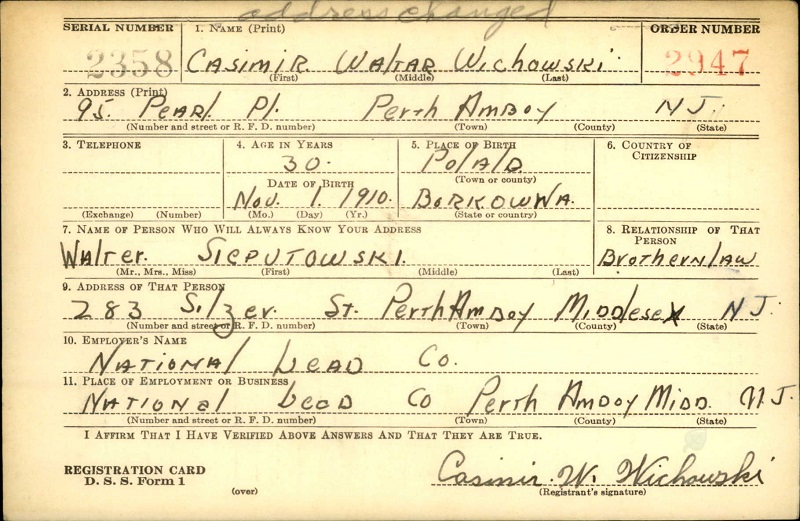 address changed
SERIAL NUMBER 1. NAME (Print) ORDER NUMBER
2358 CASIMIR WALTAR WICHOWSKI 2947
(First) (Middle) (Last)
2. ADDRESS (Print)
95. PEARL Pl. PERTH AMBOY NJ.
(Number and street or R. F. D. number) (Town) (County) (State)
3. TELEPHONE 4. AGE IN YEARS 5. PLACE OF BIRTH 6. COUNTRY OF CITIZENSHIP
30. POlAD
(Town or county)
DATE OF BIRTH
NOV. 1. 1910. BORKOWNA.
(Exchange) (Number) (Mo.) (Day) (Yr.) (State or country)
7. NAME OF PERSON WHO WILL ALWAYS KNOW YOUR ADDRESS 8. RELATIONSHIP OF THAT PERSON
WALTER. SIEPUTOWSKI. BROTHERNLAW
(Mr., Mrs., Miss) (First) (Middle) (Last)
9. ADDRESS OF THAT PERSON
283 Silzer. St. PERTH AMBOY MIDDlESEX NJ.
(Number and street or R. F. D. number) (Town) (County) (State)
10. EMPLOYER'S NAME
NATIONAl LEAD CO.
11. PLACE OF EMPLOYMENT OR BUSINESS
NATIONAl LEAD CO PERTH AMBOY MIDD. NJ.
(Number and street or R. F. D. number) (Town) (County) (State)
I AFFIRM THAT I HAVE VERIFIED ABOVE ANSWERS AND THAT THEY ARE TRUE.
REGISTRATION CARD
D. S. S. Form 1
(over)
Casimir. W. Wichowski
(Registrant's signature)